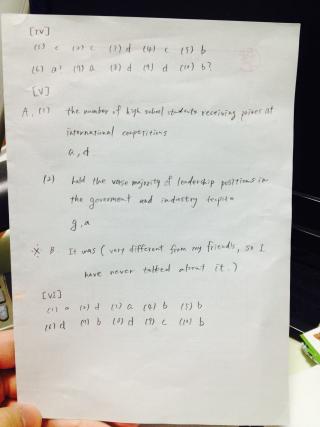 [IV]
(1) c (2) c (3) d (4) c (5) b
(6) a (7) a (8) d (9) d (10) b?
[V]
A. (1) the number of high school students receiving prizes at
international competitions
a, d
(2) hold the vase majority of leadership positions in
the goverment and industry despite
g, a
※ B. It was (very different from my friends, so I
have never talked about it.)
[VI]
(1) a (2) d (3) a (4) b (5) b
(6) d (7) b (8) d (9) c (10) b